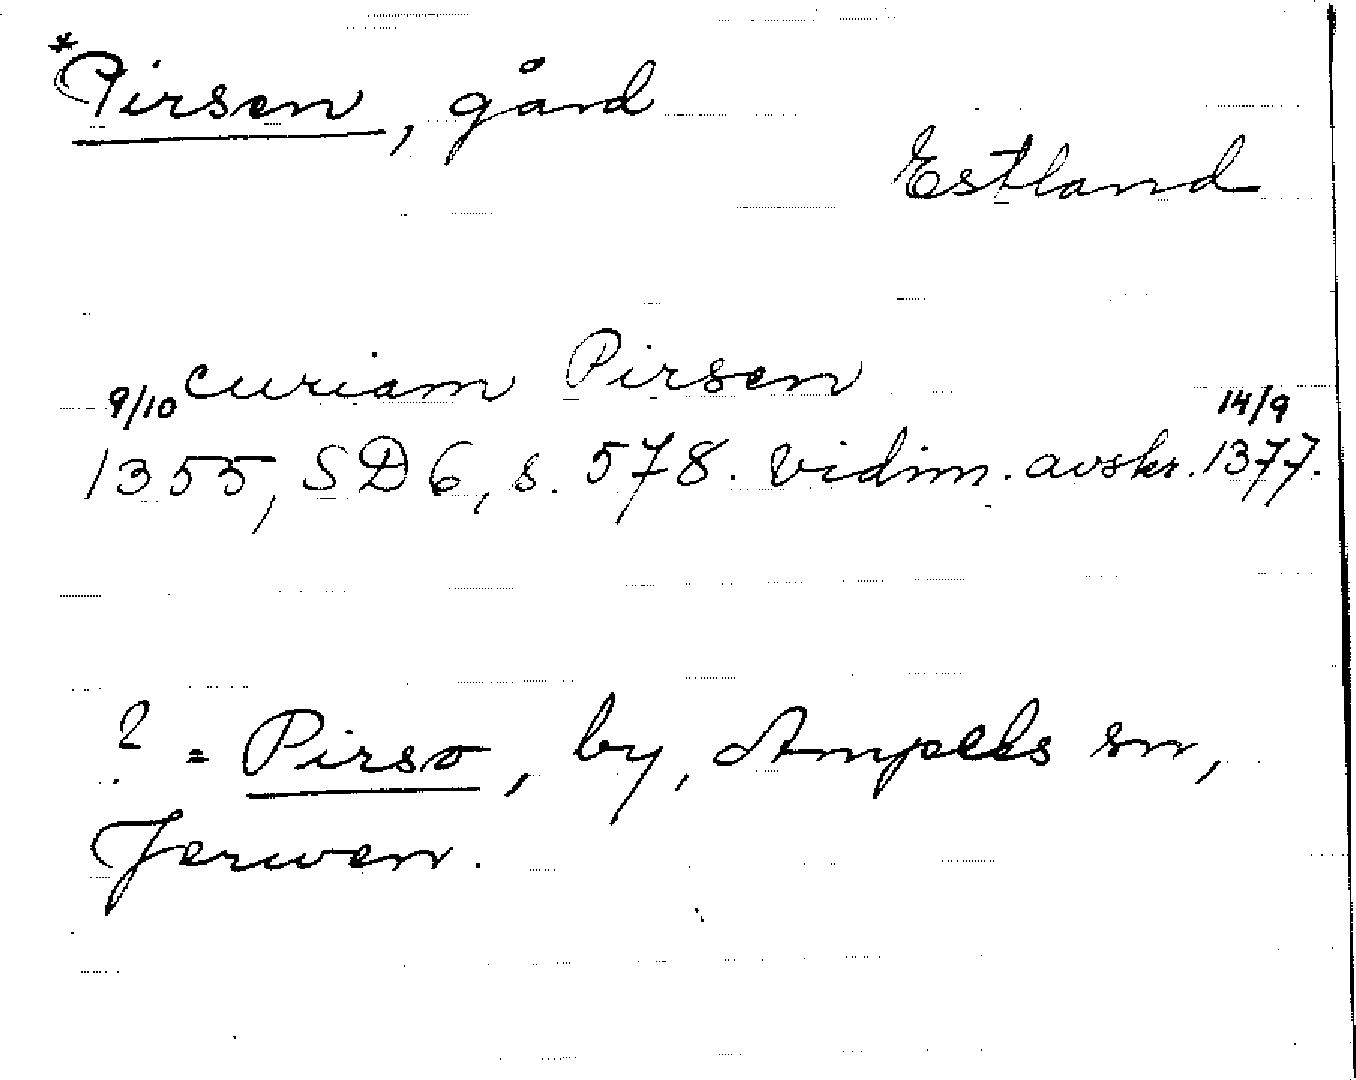 *Pirsen, gård
Estland
curiam Pirsen
9/10 1355, SD 6, s. 578. Vidim. avskr. 14/9 1377.
? = Pirso, by, Ampels sn,
Jerwen.